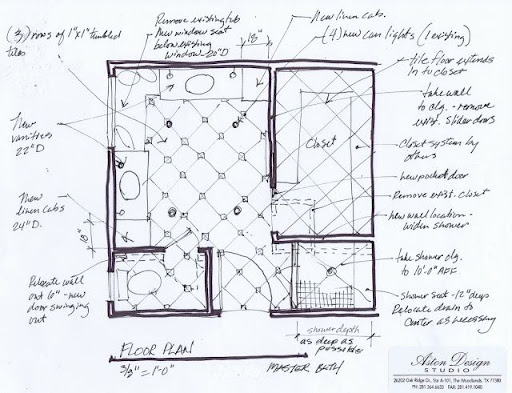 (3) rows of 1"x1" tumbled
tiles
Remove existing tub
New window seat
below existing
window - 20"D
18"
New linen cab.
(4) new can lights (1 existing)
tile floor extends
into closet
take wall
to clg. - remove
exist. slider doors
Closet
Closet system by
others
new pocket door
Remove exist. closet
new wall location -
widen shower
take shower clg.
to 10'-0" AFF
shower seat - 12" deep
Relocate drain to
center as necessary
New
vanities
22"D
New
linen cabs
24"D.
18"
Relocate wall
out 6" - new
door swinging
out
shower depth
as deep as
possible
FLOOR PLAN
3/8" = 1'-0"
MASTER BATH
Aston Design
STUDIO
26202 Oak Ridge Dr., Ste A-101, The Woodlands, TX 77380